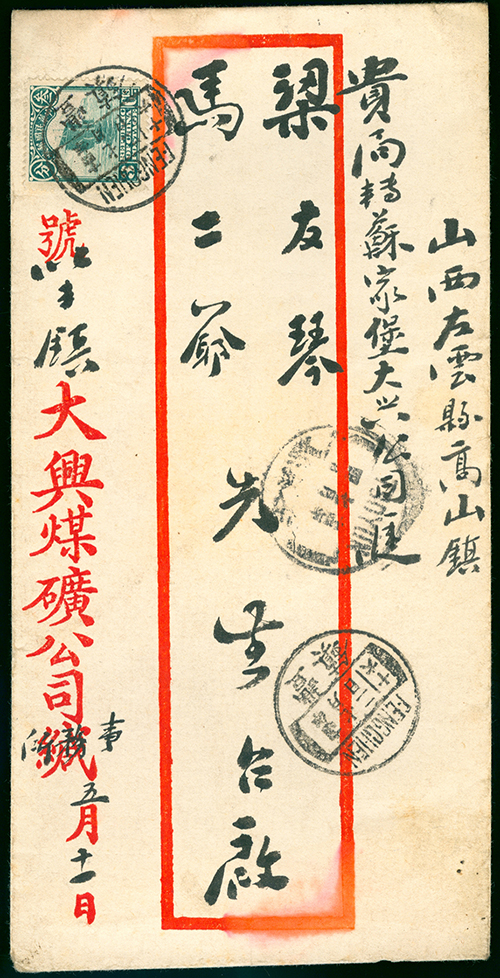 山西左雲縣高山鎮
貴局轉蘇家堡大興公司進
梁友琴
馬二爺
先生台啟
號
鎮大興煤礦公司緘
事務所
五月十一日
FENGCHEN
FENGCHEN